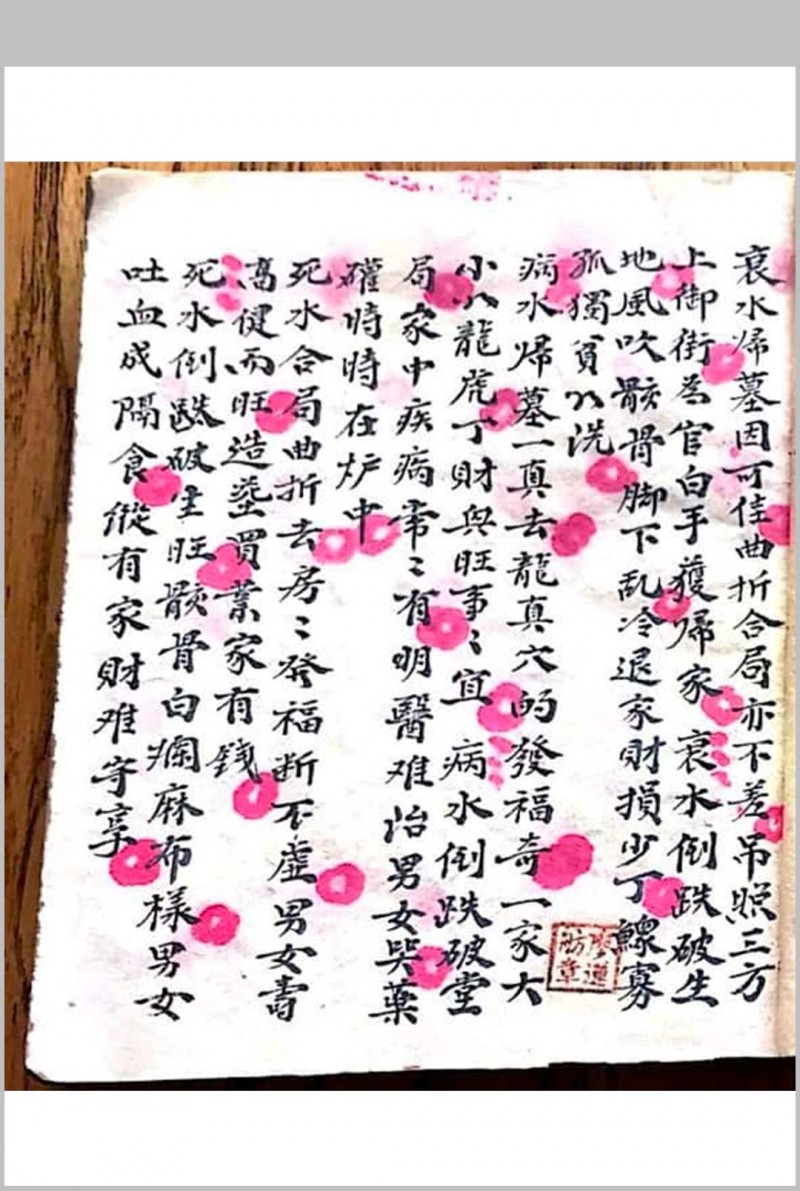 衰水歸墓因可佳曲折合局亦不差吊照三方
上御街為官白手獲歸家 衰水倒跌破生
地風吹骸骨脚下乱冷退家財損少丁鰥寡
孤獨貧以洗
病水歸墓一真去龍真穴的發福奇一家大
小以龍虎丁財與旺事〻宜 病水倒跌破堂
局家中疾病常〻有明醫难治男女哭藥
罐時時在炉中
死水合局曲折去房〻發福断不虛男女壽
高健而旺造塟買業家有錢
死水倒跌破生旺骸骨白爛麻布樣男女
吐血成隔食縱有家財难守享
廖道
舫章